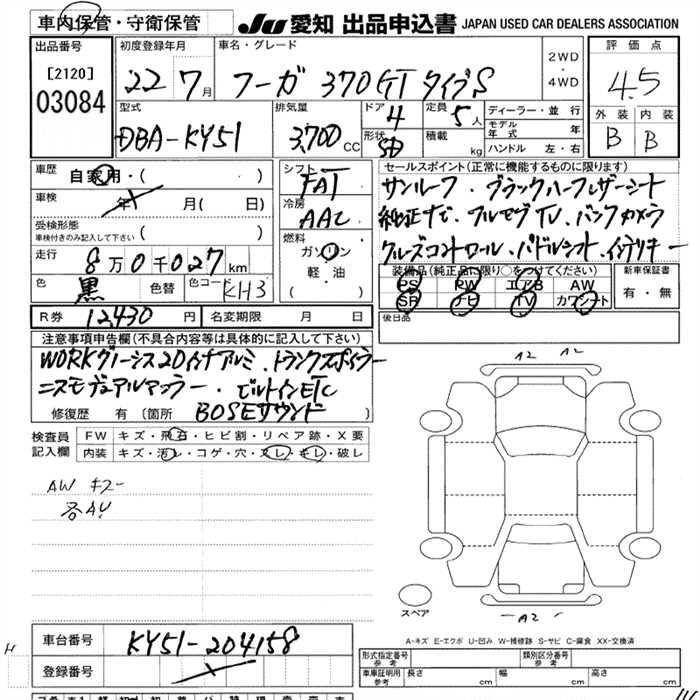 車内保管・守衛保管
JU 愛知 出品申込書 JAPAN USED CAR DEALERS ASSOCIATION
出品番号 初度登録年月 車名・グレード 2WD・4WD 評価点
[2120] 03084 22 7月 フーガ 370GT タイプS 4.5
型式 排気量 ドア 4 定員 5人 ディーラー・並行 外装 内装
DBA-KY51 3,700CC 形状 SD 積載 kg モデル年式 年 B B
ハンドル 左・右
車歴 自家用・( )
シフト FAT
セールスポイント(正常に機能するものに限ります)
車検 年 月( 日)
冷房 AAC
サンルーフ・ブラックハーフレザーシート
受検形態 ( )
車検付きのみ記入して下さい
純正ナビ、フルセグTV、バックカメラ
走行 8万0千027km
燃料 ガソリン 軽油 ( )
クルーズコントロール、パドルシフト、インテリキー
色 黒 色替 色コード KH3
装備品(純正品に限り○をつけてください) 新車保証書
PS PW エアB AW 有・無
SR ナビ TV カワシート
R券 12,430円 名変期限 月 日
後日品
注意事項申告欄(不具合内容等は具体的に記入して下さい)
WORKグノーシス20インチアルミ、トランクスポイラー
ニスモデュアルマフラー・ビルトインETC
修復歴 有(箇所 BOSEサウンド )
A2 A2
検査員記入欄 FW キズ・飛石・ヒビ割・リペア跡・X要
内装 キズ・汚レ・コゲ・穴・スレ・キレ・破レ
AW キズー
各AU
スペア
A2
A-キズ E-エクボ U-凹み W-補修跡 S-サビ C-腐食 XX-交換済
車台番号 KY51-204158
登録番号
形式指定番号 参考 類別区分番号 参考
車庫証明用 参考 長さ cm 幅 cm 高さ cm